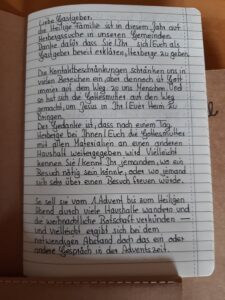 Liebe Gastgeber,
die Heilige Familie ist in diesem Jahr auf
Herbergssuche in unseren Gemeinden.
Danke dafür dass Sie/Ihr sich/Euch als
Gastgeber bereit erklären, Herberge zu geben.
Die Kontaktbeschränkungen schränken uns in
vielen Bereichen ein, aber dennoch ist Gott
immer auf dem Weg zu uns Menschen. Und
so hat sich die Gottesmutter auf den Weg
gemacht, um Jesus in Ihr/Euer Heim zu
bringen.
Der Gedanke ist, dass nach einem Tag
Herberge bei Ihnen/Euch die Gottesmutter
mit allen Materialien an einen anderen
Haushalt weitergegeben wird. Vielleicht
kennen Sie/kennt Ihr jemanden, wo ein
Besuch nötig sein könnte, oder wo jemand
sich sehr über einen Besuch freuen würde.
So soll sie vom 1. Advent bis zum Heiligen
Abend durch viele Haushalte wandern und
die weihnachtliche Botschaft verkünden –
und vielleicht ergibt sich bei dem
notwendigen Abstand doch das ein oder
andere Gespräch in der Adventszeit.